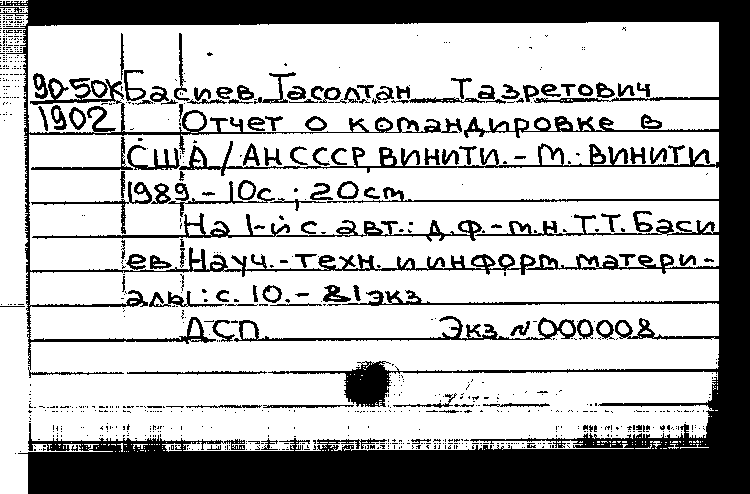 90-50к Басиев Тасолтан Тазретович
1902 Отчет о командировке в
США / АН СССР, ВИНИТИ. - М.: ВИНИТИ,
1989. - 10с.; 20см.
На 1-й с. авт.: д.ф.-м.н. Т.Т. Баси
ев. Науч.-техн. и информ. матери-
алы: с. 10. - 81экз.
ДСП. Экз. N 000008.